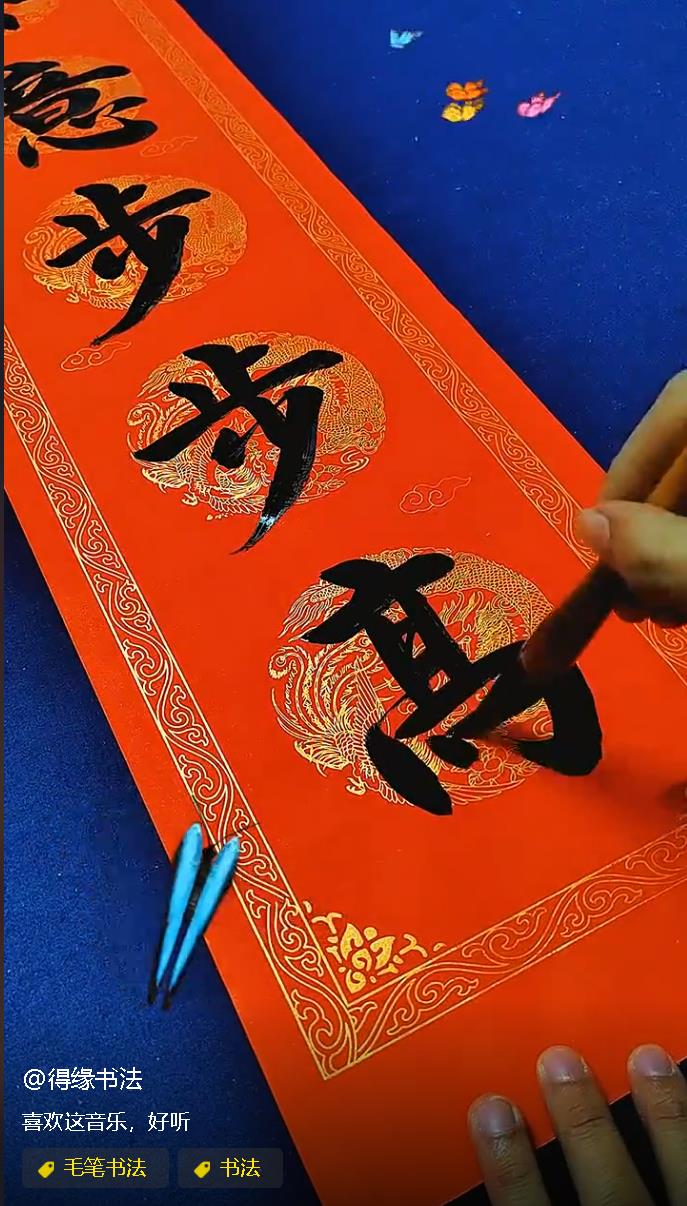 意步步高
@得缘书法
喜欢这音乐，好听
毛笔书法
书法